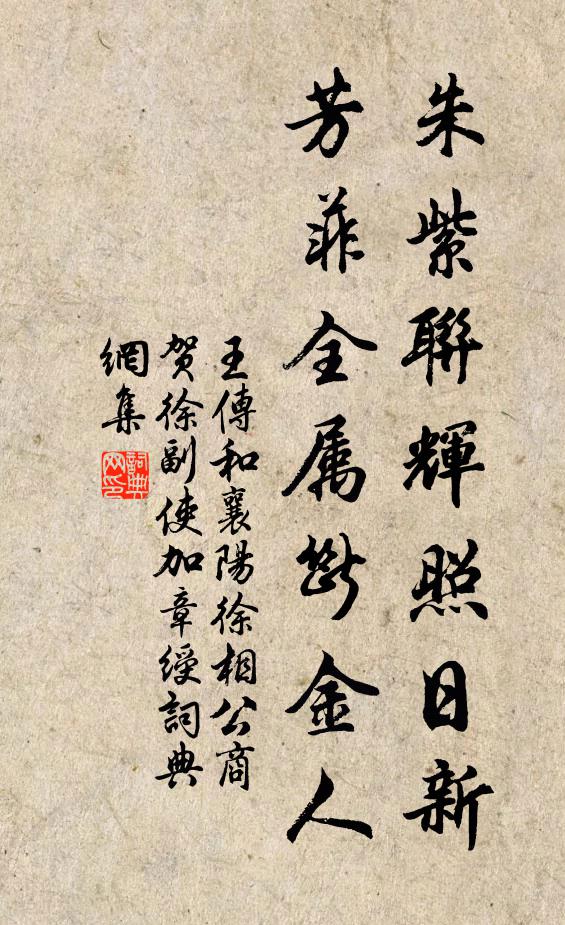 朱紫聯輝照日新
芳菲全属斷金人
王傳和襄陽徐相公商
賀徐副使加章綬詞典
網集
詞典
网印